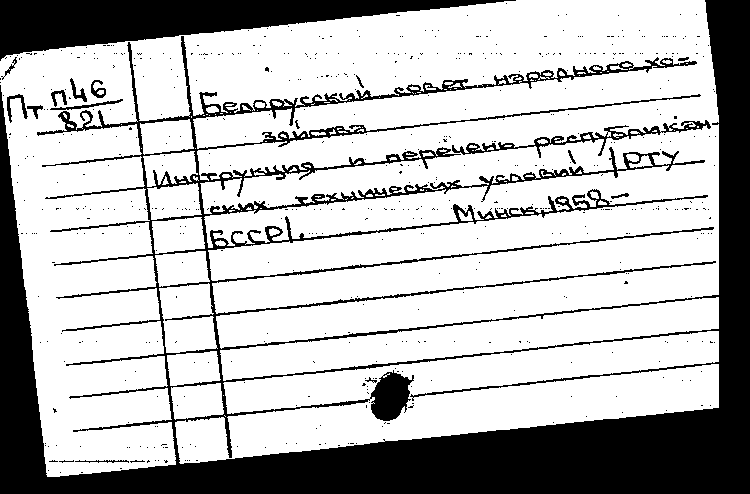 Пт п46
821
Белорусский совет народного хо-
зяйства
Инструкция и перечень республикан-
ских технических условий /РТУ
БССР/. Минск, 1958.-